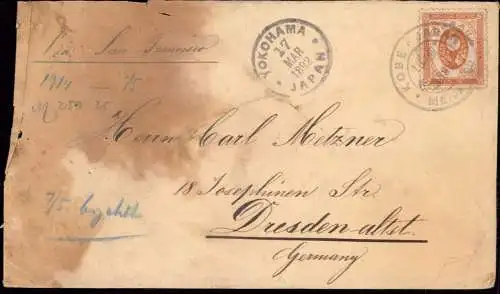 Via San Francisco
YOKOHAMA
17
MAR
1892
JAPAN
KOBE JAPAN
1914 — 75
M 253 25
Herrn Carl Metzner
18 Josephinen Str.
7/5
Dresden-altst.
Germany